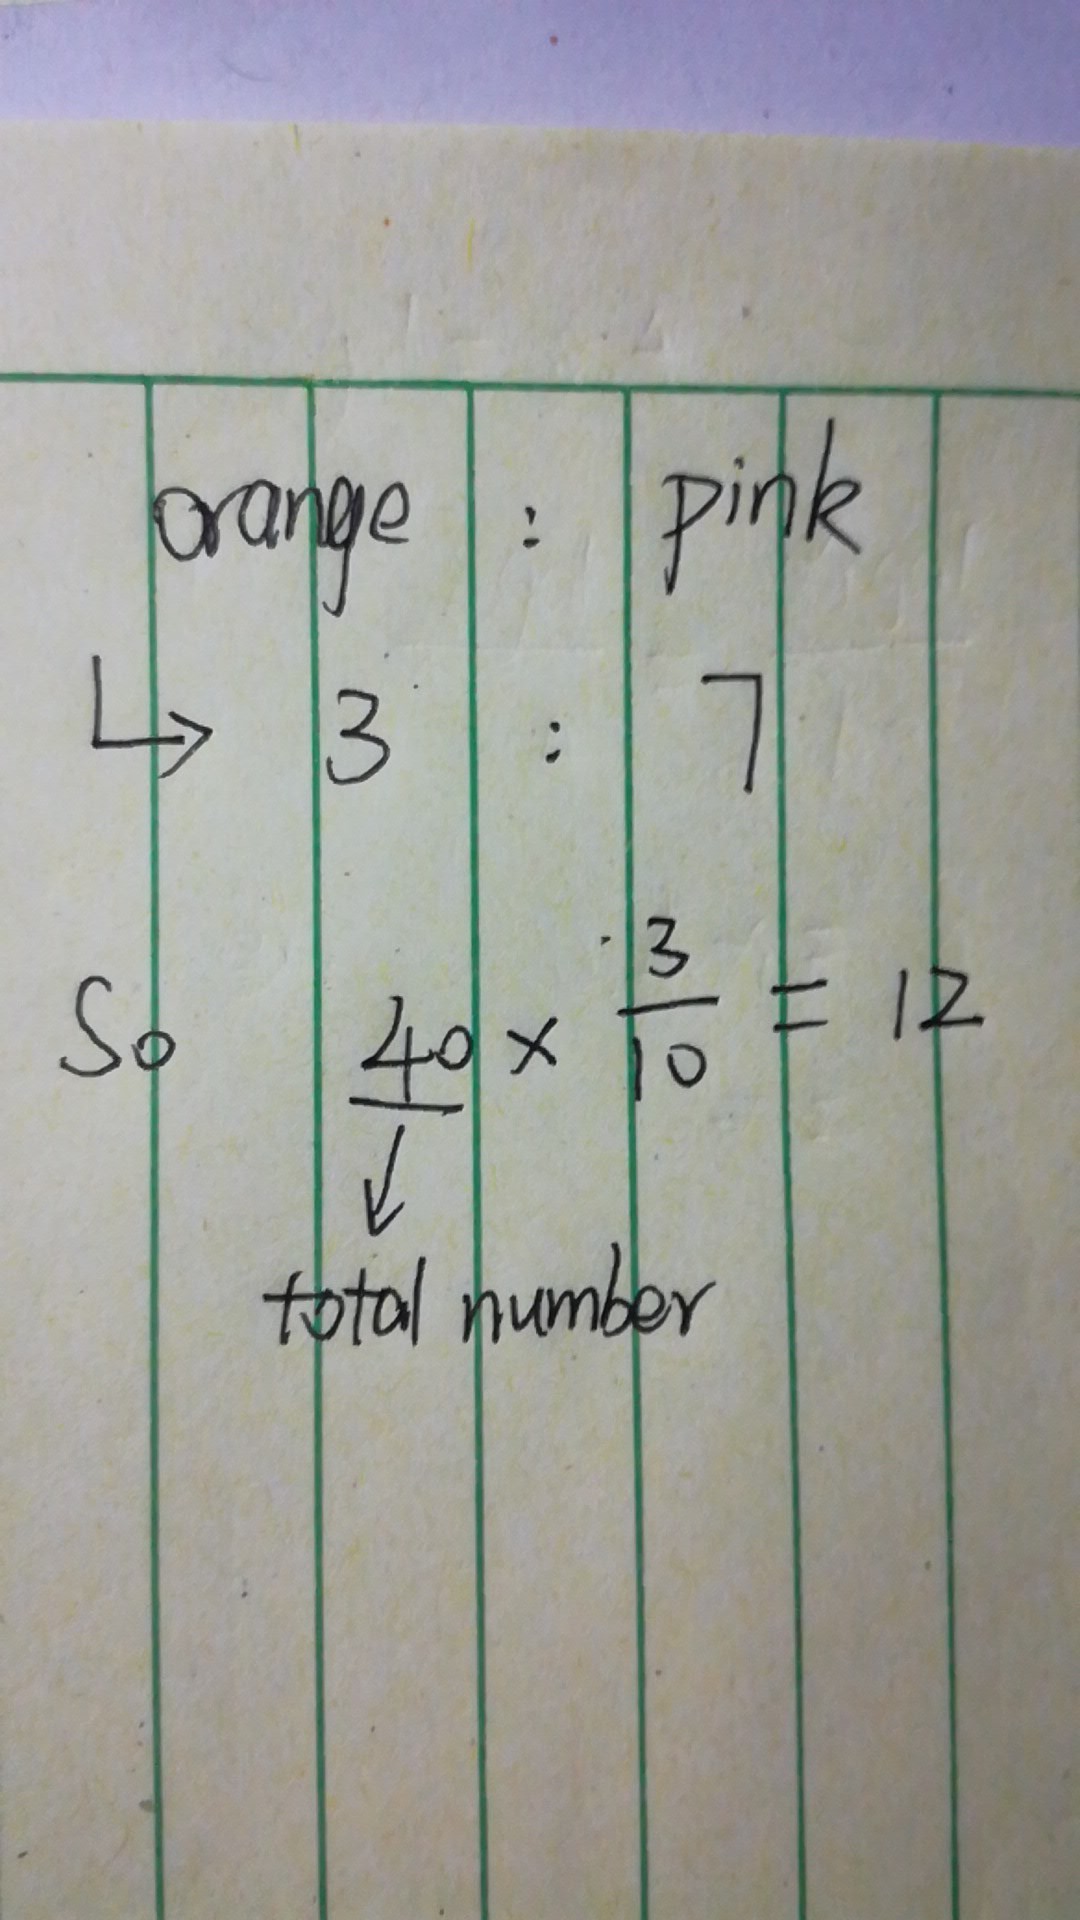 orange : pink
↳ 3 : 7
So 40 × 3/10 = 12
↓
total number